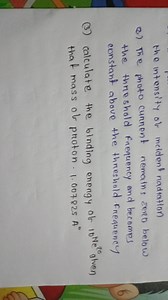 the intensity of incident radiation
e) The photo current remains zero below
the threshold frequency and becomes
constant above the threshold frequency
③ calculate the binding energy of given
that mass of proton 1.007825 A°